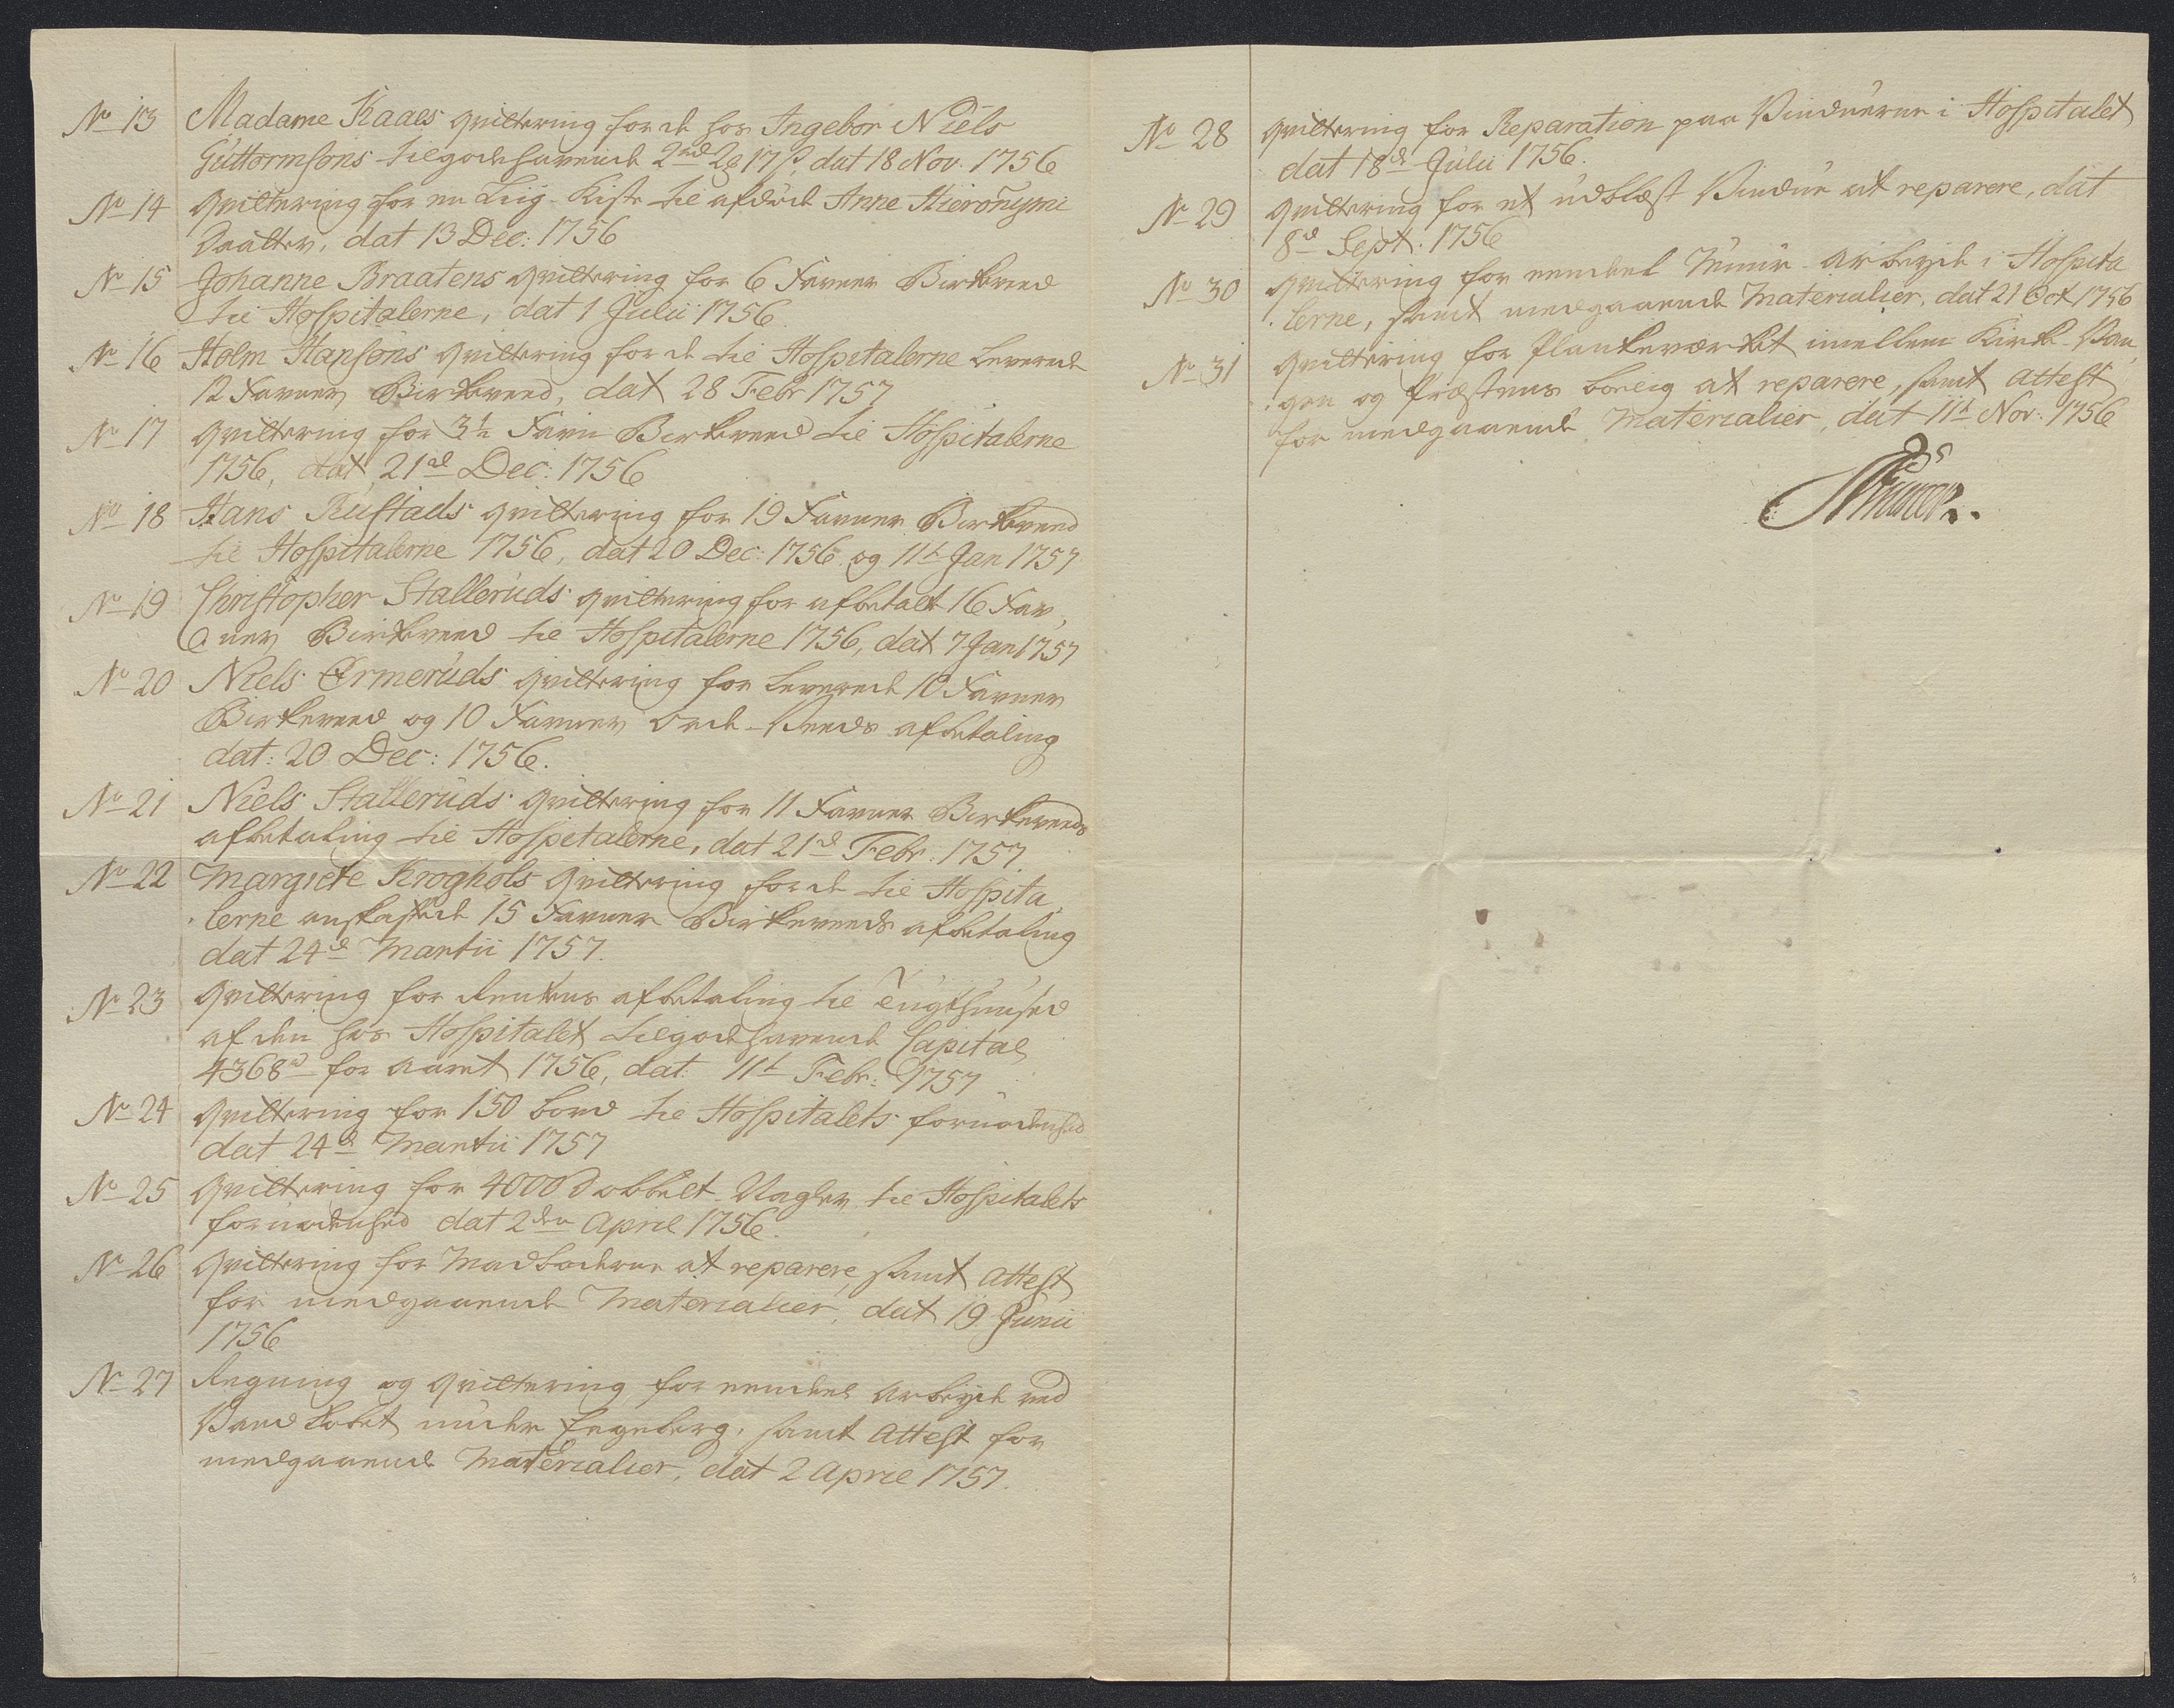 No 13 Madame Kaaes qvittering for de hos Ingebor Niels
Guttormsons tilgodehavende 2 rd 2 17 s, dat 18 Nov. 1756
No 14 qvittering for en Liig-Kiste til afdøde Anne Hieronymi
Daatter, dat 13 Dec: 1756
No 15 Johanne Braatens qvittering for 6 Favner Birkeved
til Hospitalerne, dat 1 Julii 1756
No 16 Holm Hansons qvittering for de til Hospitalerne Leverede
12 Favner Birkeveed, dat 28 Febr 1757
No 17 qvittering for 3½ Favn Birkeveed til Hospitalerne
1756, dat 21de Dec: 1756
No 18 Hans Rustads qvittering for 19 Favner Birkeveed
til Hospitalerne 1756, dat 20 Dec: 1756 og 11t Jan 1757
No 19 Christopher Stalleruds qvittering for afbetalt 16 Fav,
ner Birkeveed til Hospitalerne 1756, dat 7 Jan 1757
No 20 Niels Ormeruds qvittering for Leverede 10 Favner
Birkeveed og 10 Favner Orde-Veeds afbetaling
dat: 20 Dec: 1756.
No 21 Niels Stalleruds qvittering for 11 Favner Birkeveeds
afbetaling til Hospitalerne, dat 21d Febr: 1757
No 22 Margrete Kroghols qvittering for de til Hospita,
lerne anskaffede 15 Favner Birkeveeds afbetaling
dat 24d Martii 1757.
No 23 qvittering for Rentens afbetaling til Tugthuused
af den hos Hospitalet tilgodehavende Capital
4368 rd for Aaret 1756, dat: 11t Febr: 1757
No 24 qvittering for 150 bord til Hospitalets fornødenhed
dat 24d Martii 1757
No 25 qvittering for 4000 Dobbelt-Nagler til Hospitalets
fornødenhed dat 2den April 1756.
No 26 qvittering for Madboderne at reparere, samt Attest
for medgaaende Materialier, dat 19 Junii
1756
No 27 Regning og qvittering for eendeel Arbeyde ved
Vand under Egeberg, samt Attest for
medgaaende Materialier, dat 2 April 1757.
No 28 qvittering for Reparation paa Vinduerne i Hospitalet
dat 18d Julii 1756.
No 29 qvittering for et udblæst Vindue at reparere, dat
8d Sept: 1756
No 30 qvittering for eendeel Muur-Arbeyde i Hospita
lerne, samt medgaaende Materialier, dat 21 Oct 1756
No 31 qvittering for Plankeværket imellem Kirke-Van,
gen og Præstens boelig at reparere, samt Attest
for medgaaende Materialier, dat 11t Nov: 1756